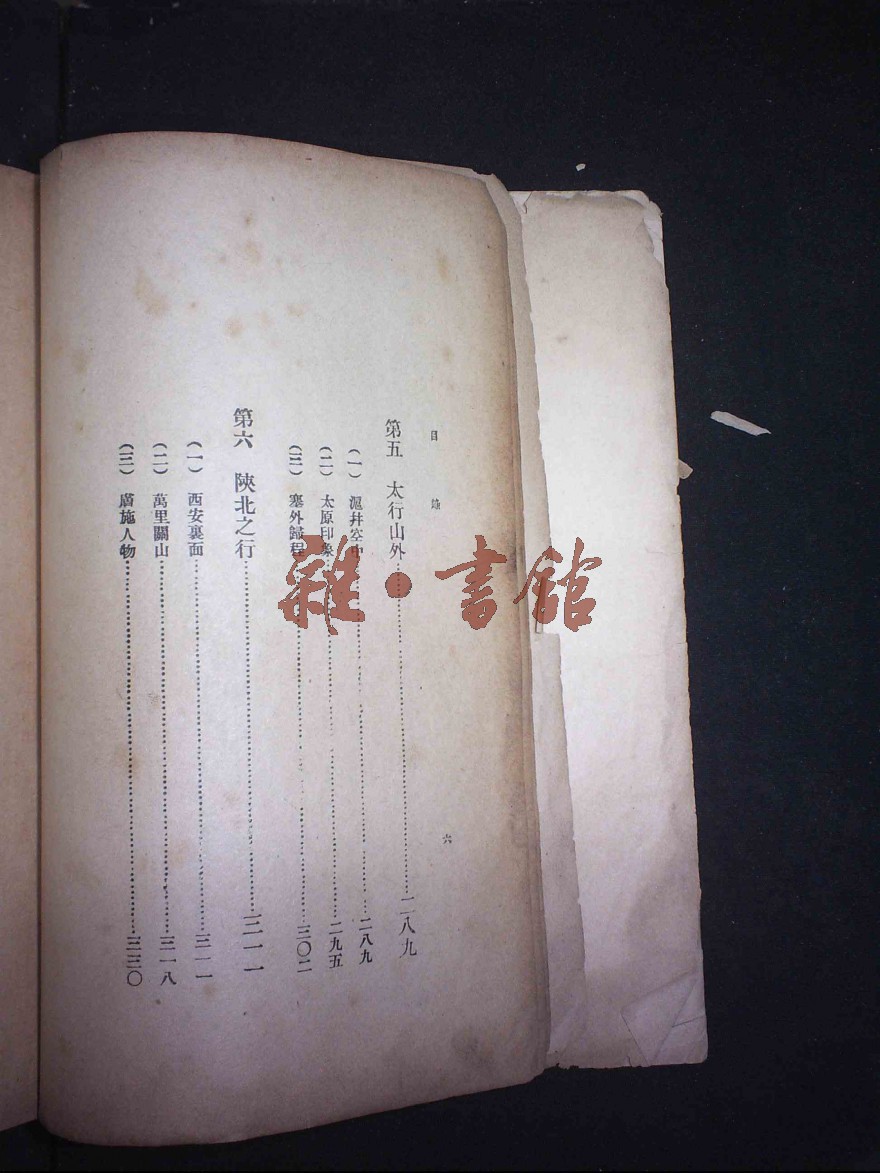 目錄
六
第五 太行山外……二八九
（一）滬幷空中……二八九
（二）太原印象……二九五
（三）塞外歸程……三〇二
第六 陝北之行……三一一
（一）西安裏面……三一一
（二）萬里關山……三一八
（三）膚施人物……三三〇
雜·書館